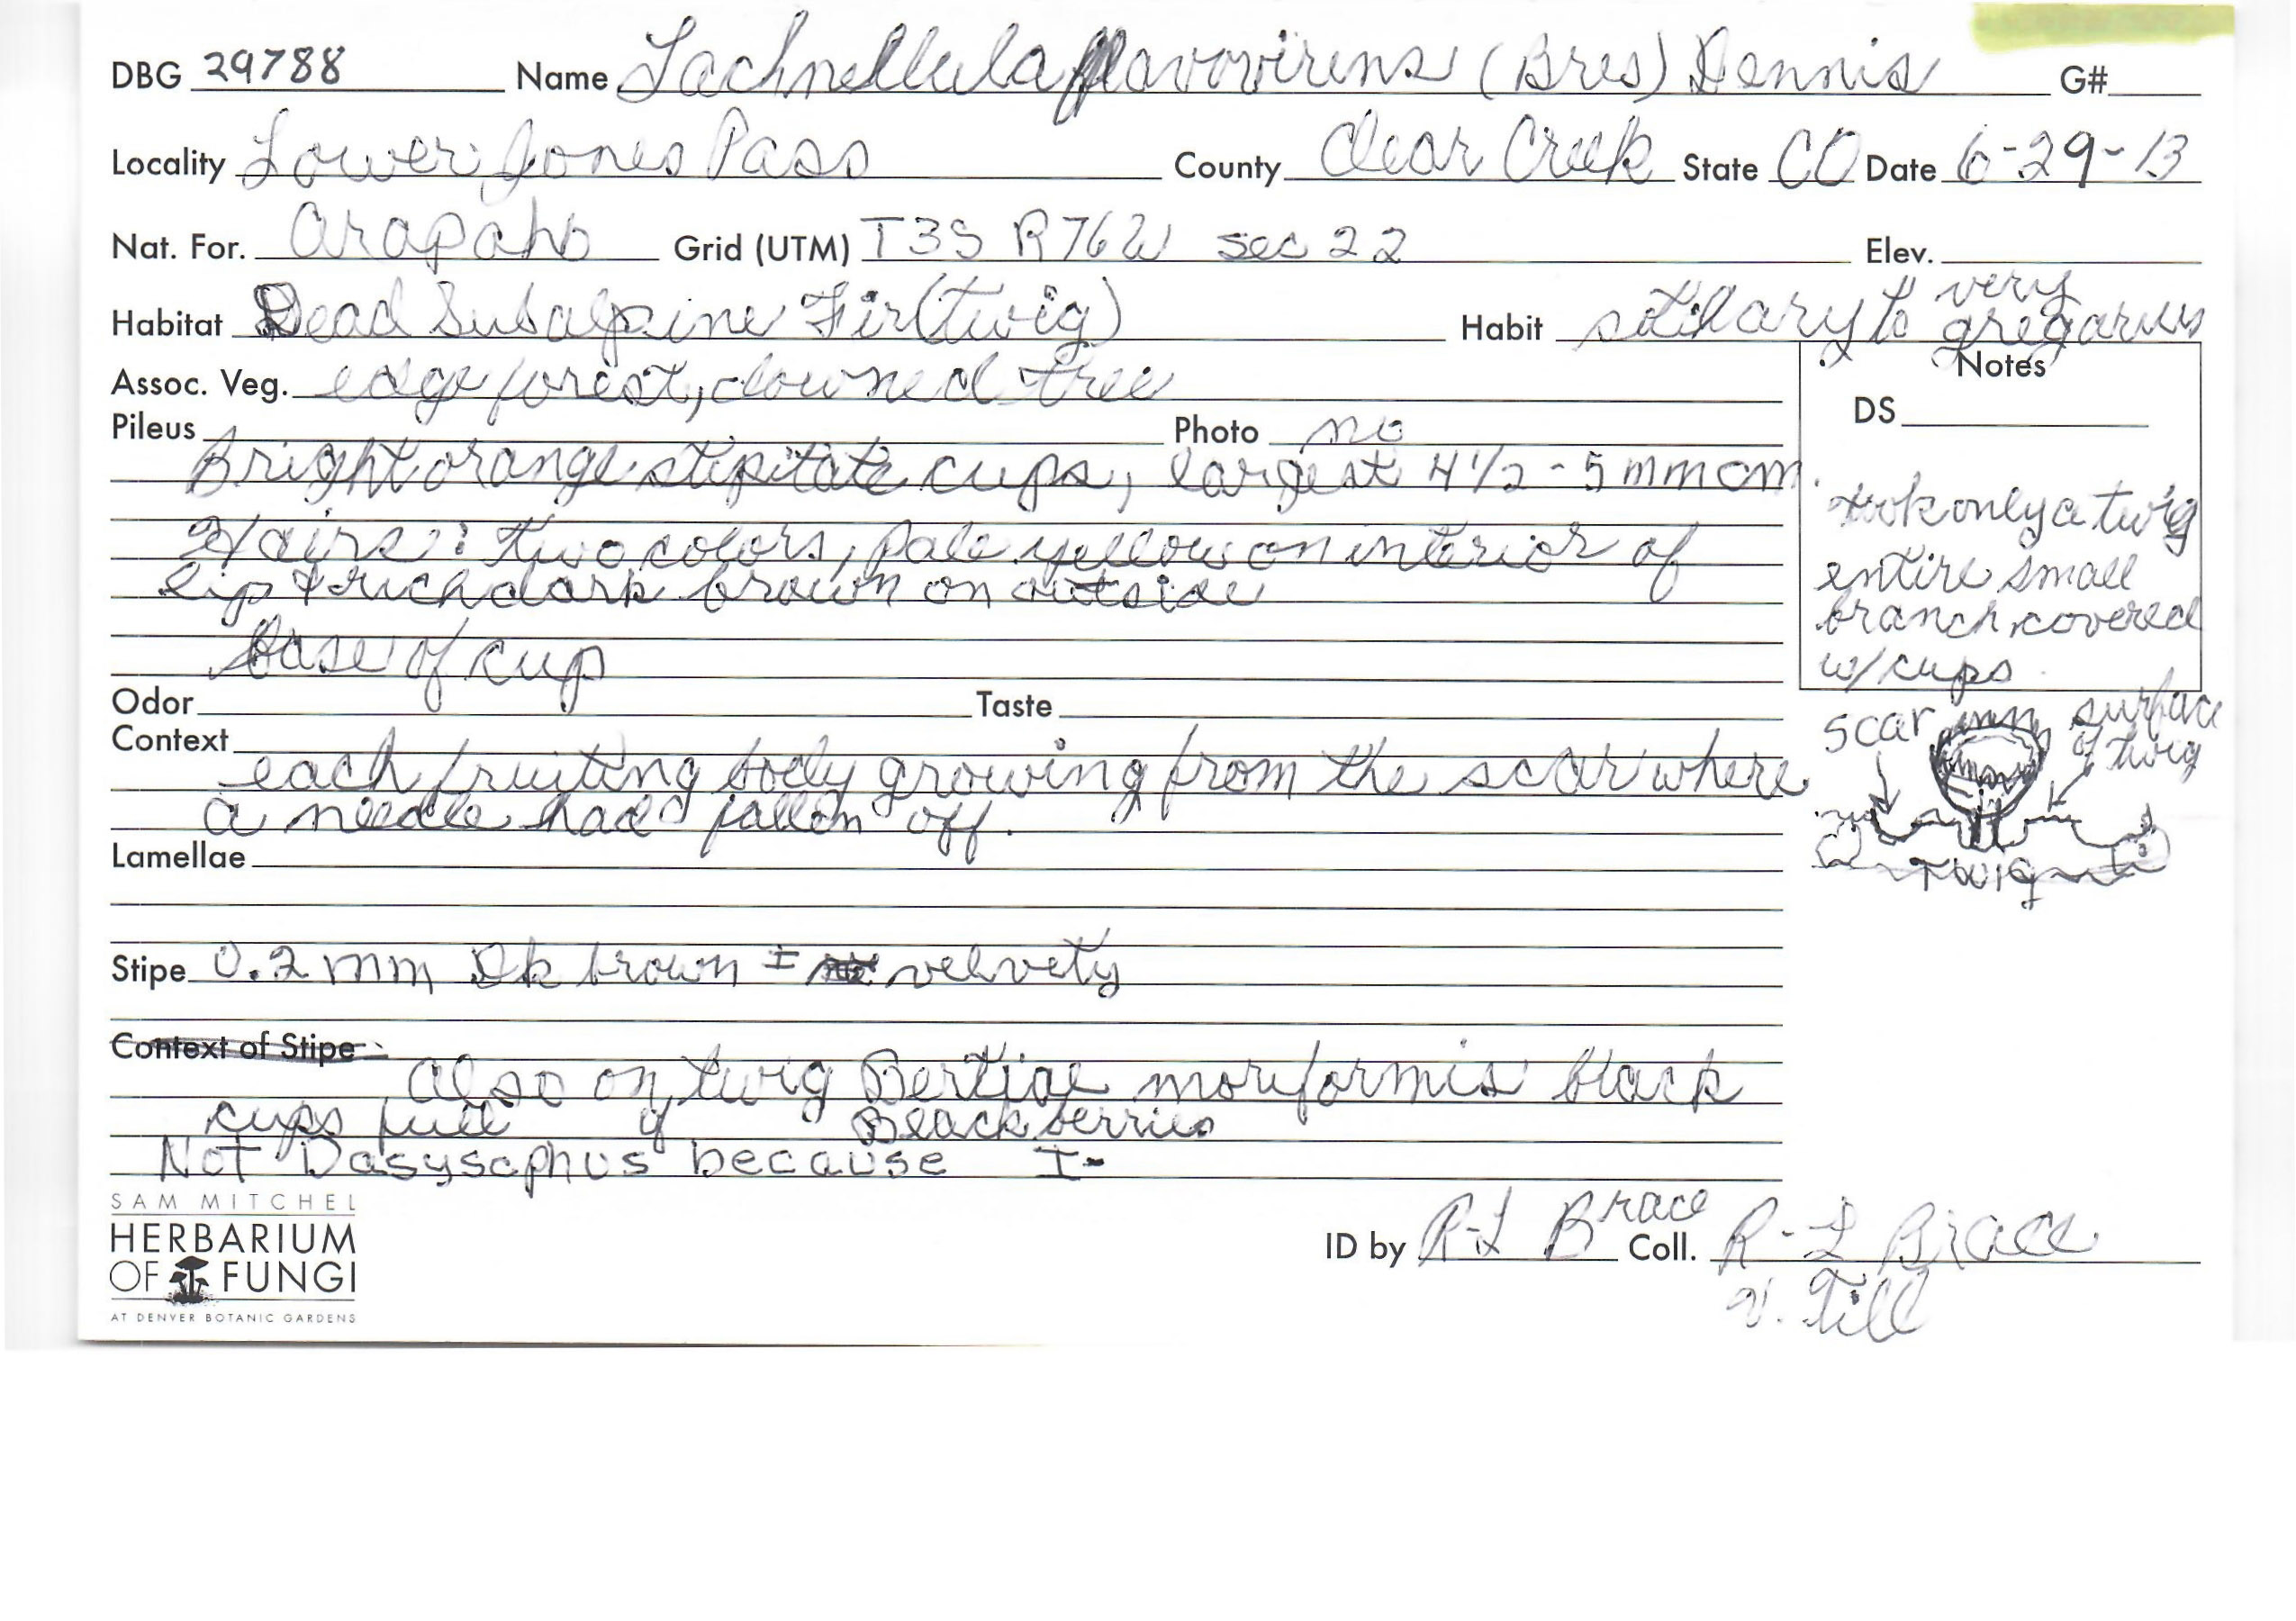 DBG 29788 Name Lachnellula flavovirens (Bres) Dennis G#
Locality Lower Jones Pass County Clear Creek State CO Date 6-29-13
Nat. For. Arapaho Grid (UTM) T3S R76W sec 22 Elev.
Habitat Dead Subalpine Fir (twig) Habit solitary to very gregarius
Assoc. Veg. edge forest, downed tree
Notes
DS
Pileus Photo no
Bright orange stipitate cups, largest 4 1/2 - 5 mm cm.
Hairs: two colors, pale yellow on interior of
lip & rich dark brown on outside
base of cup
took only a twig
entire small
branch covered
w/ cups
Odor Taste
Context
each fruiting body growing from the scar where
a needle had fallen off.
scar
surface
of twig
Twig
Lamellae
Stipe 0.2 mm Dk brown ± velvety
Context of Stipe
also on twig Bertiae moriformis black
cups full of Blackberries
Not Dasyscphus because I-
SAM MITCHEL
HERBARIUM
OF FUNGI
AT DENVER BOTANIC GARDENS
ID by R-L Brace Coll. R-L Brace
V. Till